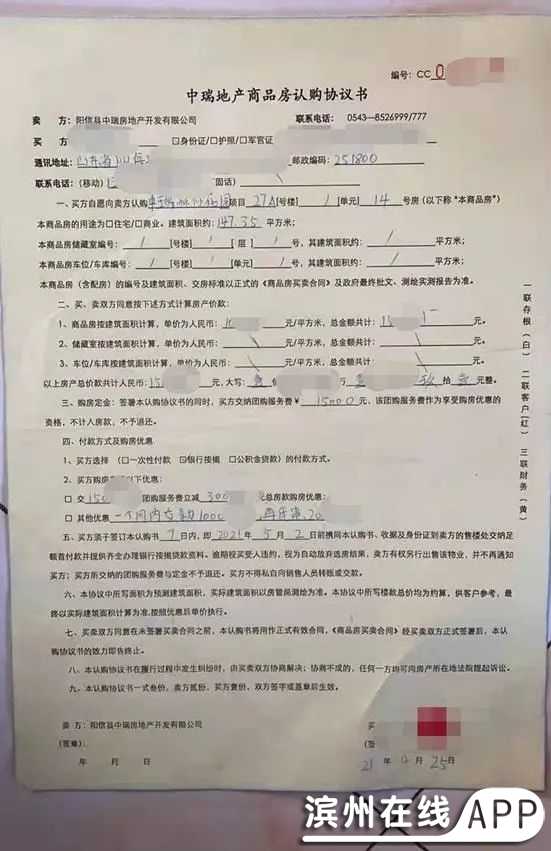 编号：CC 0
中瑞地产商品房认购协议书
卖 方：阳信县中瑞房地产开发有限公司 联系电话：0543—8526999/777
买 方 ☑身份证/□护照/□军官证
通讯地址：山东省 邮政编码：251800
联系电话：（移动） 固话）
一、买方自愿向卖方认购 项目 27A [号楼] / [单元] 14 号房（以下称“本商品房”）
本商品房的用途为□住宅/□商业。建筑面积约：147.35 平方米；
本商品房储藏室编号： / [号楼] / [层] / 号，其建筑面积约： / 平方米；
本商品房车位/车库编号： / [号楼] / [单元] / 号，其建筑面积约： / 平方米；
本商品房（含配房）的编号及建筑面积、交房标准以正式的《商品房买卖合同》及政府最终批文、测绘实测报告为准。
二、买、卖双方同意按下述方式计算房产价款：
1、商品房按建筑面积计算，单价为人民币： 元/平方米，总金额共计： 元。
2、储藏室按建筑面积计算，单价为人民币： 元/平方米，总金额共计： 元。
3、车位/车库按建筑面积计算，单价为人民币： 元/平方米，总金额共计： 元。
以上房产总价款共计人民币：15 元，大写：壹 万 玖 拾 元整。
三、购房定金：签署本认购协议书的同时，买方交纳团购服务费￥ 15000 元，该团购服务费作为享受购房优惠的
资格，不计入房款，不予退还。
四、付款方式及购房优惠
1、买方选择 （□一次性付款 ☑银行按揭 □公积金贷款）的付款方式。
2、买方 以下优惠：
□ 交 150 团购服务立减 300 元总房款购房优惠；
□ 其他优惠 一个月内交款1000 ，再乐券.20
五、买方须于签订本认购书 7 日内，即 2021 年 5 月 2 日前携同本认购书、收据及身份证到卖方的售楼处交纳足
额首付款并提供齐全办理银行按揭贷款资料。逾期役买受人违约，视为自动放弃选房结果，卖方有权另行出售该物业，并不再通知
买方；买方所交纳的团购服务费与定金不予退还。买方不得私自向销售人员转账或交款。
六、本协议中所写面积为预测建筑面积，实际建筑面积以房管局测绘为准。本协议中所写楼款总价均为约算，供客户参考，最
终以实际建筑面积计算为准，按照优惠后单价执行。
七、买卖双方同意在未签署买卖合同之前，本认购书将用作正式有效合同，《商品房买卖合同》经买卖双方正式签署后，本认
购协议书的效力即告终止。
八、本认购协议书在履行过程中发生纠纷时，由买卖双方协商解决；协商不成的，任何一方均可向房产所在地法院提起诉讼。
九、本认购协议书一式叁份，卖方贰份，买方壹份，双方签字或盖章后生效。
卖 方：阳信县中瑞房地产开发有限公司 买
（签章） （签
年 月 日 21 年 4 月 25日
一联存根（白）二联客户（红）三联财务（黄）
滨州在线 APP